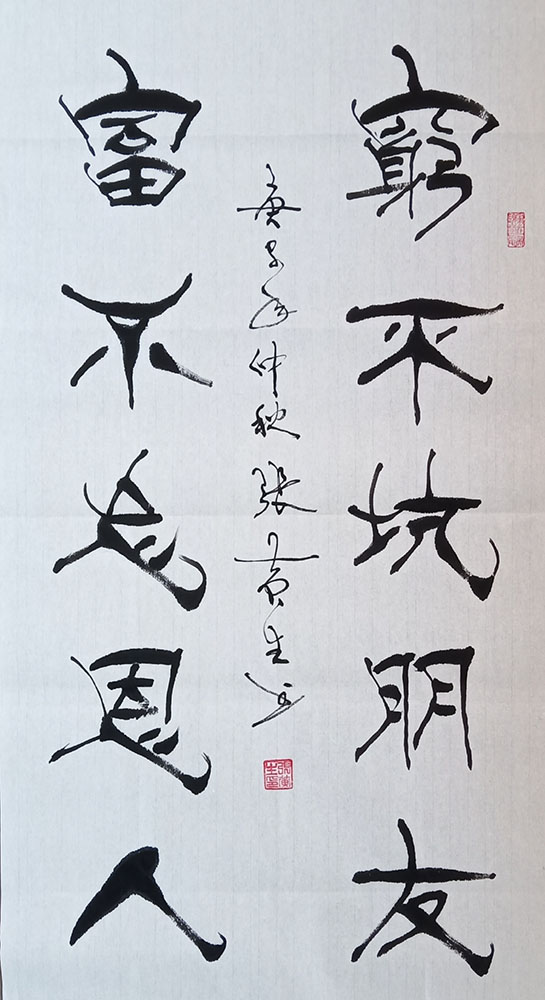 窮不坑朋友
富不忘恩人
庚子年仲秋張寅生